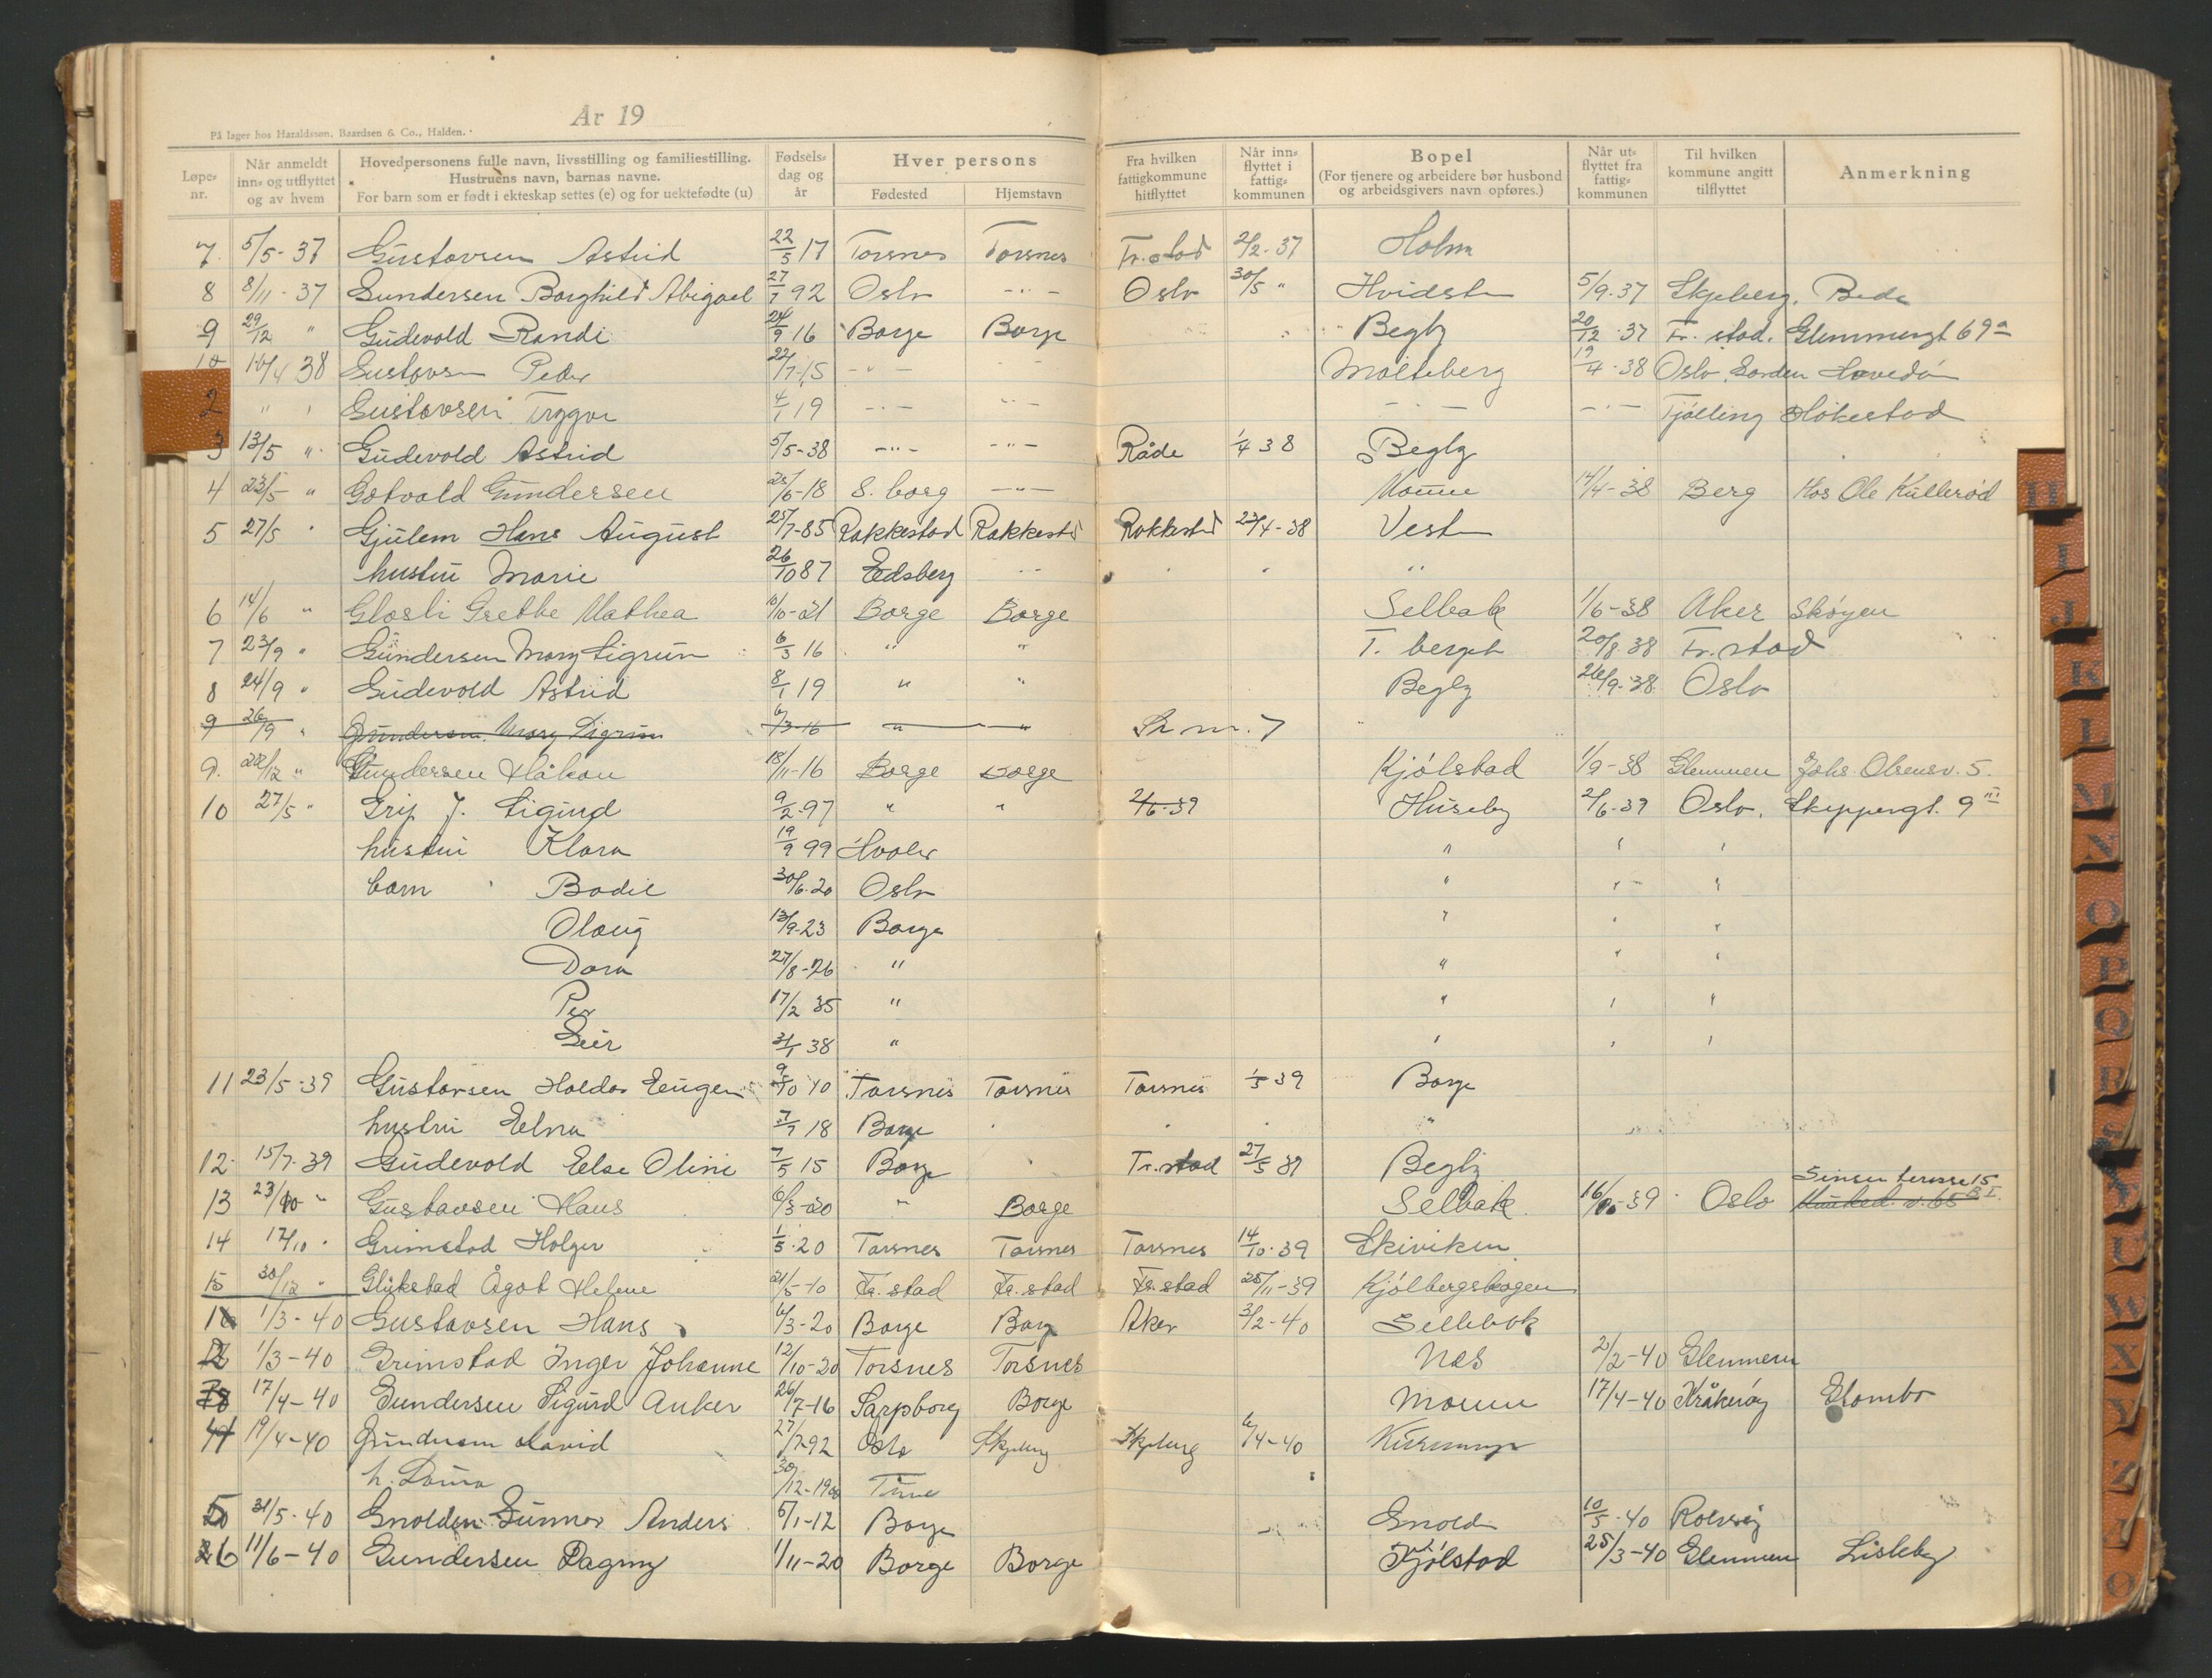 År 19
På lager hos Haraldssøn, Baardsen & Co., Halden.
Løpe-nr. Når anmeldt inn- og utflyttet og av hvem Hovedpersonens fulle navn, livsstilling og familiestilling. Hustruens navn, barnas navne. For barn som er født i ekteskap settes (e) og for uektefødte (u) Fødsels-dag og år Hver persons Fødested Hjemstavn Fra hvilken fattigkommune hitflyttet Når inn-flyttet i fattig-kommunen Bopel (For tjenere og arbeidere bør husbond og arbeidsgivers navn opføres.) Når ut-flyttet fra fattig-kommunen Til hvilken kommune angitt tilflyttet Anmerkning
7 5/5-37 Gustavsen Astrid 22/5 17 Torsnes Torsnes Fr.stad 2/2-37 Holm
8 8/11-37 Gundersen Borghild Abigael 27/7 92 Oslo -"- Oslo 30/5 " Hvidsten 5/9-37 Skjeberg.
9 29/12 " Gudevold Randi 24/9 16 Borge Borge Begby 20/12-37 Fr.stad. Glemmengt 69a
10 10/4 38 Gustavsen Peder 22/7-15 -"- -"- Molteberg 19/4-38 Oslo, Garden Hovedø
2 " " Gustavsen Trygve 4/1 19 -"- -"- -"- -"- Tjølling
3 13/5 " Gudevold Astrid 5/5-38 -"- -"- Råde 1/4 38 Begby
4 23/5 " Gotvald Gundersen 28/6-18 S.borg -"- Moum 14/4-38 Berg Hos Ole Kullerød
5 27/5 " Gjulem Hans August 25/7-85 Rakkestad Rakkestad Rakkestad 23/4-38
hustru Marie 26/10 87 Eidsberg -"- "
6 14/6 " Glosli Grethe Mathea 10/10-21 Borge Borge Selbak 1/6-38 Aker Skøyen
7 23/9 " Gundersen Mary Sigrun 6/3 16 " " T. berget 20/8 38 Fr.stad
8 24/9 " Gudevold Astrid 8/1 19 " " Begby 26/9-38 Oslo
9 26/9 " Gundersen Mary Sigrun 6/3-16 " " Se nr. 7
9. 28/12 " Gundersen Håkon 18/11-16 Borge Borge Kjølstad 1/9-38 Glemmen Johs. Olsensv. 5.
10 27/5 " Grip J. Sigurd 9/2-97 " " 2/6-39 Huseby 2/6-39 Oslo. Skippergt. 9 III
hustru Klara 19/9 99 Hvaler " " "
barn Bodil 30/6-20 Oslo " " "
Olaug 13/9-23 Borge " " "
Dora 27/8-26 " " " "
Per 17/2 35 " " " "
Geir 31/1 38 " " " "
11 23/5-39 Gustavsen Haldor Eugen 9/10 10 Torsnes Torsnes Torsnes 1/5 39 Borge
hustru Elna 7/7 18 Borge "
12 15/7-39 Gudevold Else Oline 7/5 15 Borge Fr.stad 27/5 39 Begby
Sinsen terrasse 15 B I
13 23/10 " Gustavsen Hans 6/3-20 " Borge Selbak 16/10-39 Oslo
14 17/10 " Grimstad Holger 1/5-20 Torsnes Torsnes Torsnes 14/10-39 Skiviken
15 30/12 " Glukstad Ågot Helene 21/5-10 Fr.stad Fr.stad Fr.stad 25/11-39 Kjølbergskogen
1 1/3-40 Gustavsen Hans 6/3-20 Borge Borge Aker 3/2-40 Sellebak
2 1/3-40 Grimstad Inger Johanne 12/10-20 Torsnes Torsnes Nes 2/2-40 Glemmen
3 17/4-40 Gundersen Sigurd Anker 26/7-16 Sarpsborg Borge Moum 17/4-40 Kråkerøy Glombo
4 19/4-40 Gundersen David 27/7-92 Oslo Skjeberg Skjeberg 6/4-40
h. Laura 30/12-1900 Time
5 31/5-40 Gnolden Gunnar Anders 5/1-12 Borge Gnolden 10/5-40 Rolvsøy
6 11/6-40 Gundersen Dagny 1/11-20 Borge Borge Kjølstad 25/3-40 Glemmen Lisleby
H
I
J
K
L
M
N
O
P
Q
R
S
T
U
V
W
X
Y
Z
Ø